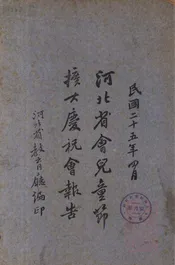 民國二十五年四月
河北省會兒童節
擴大慶祝會報告
河北省教育廳編印